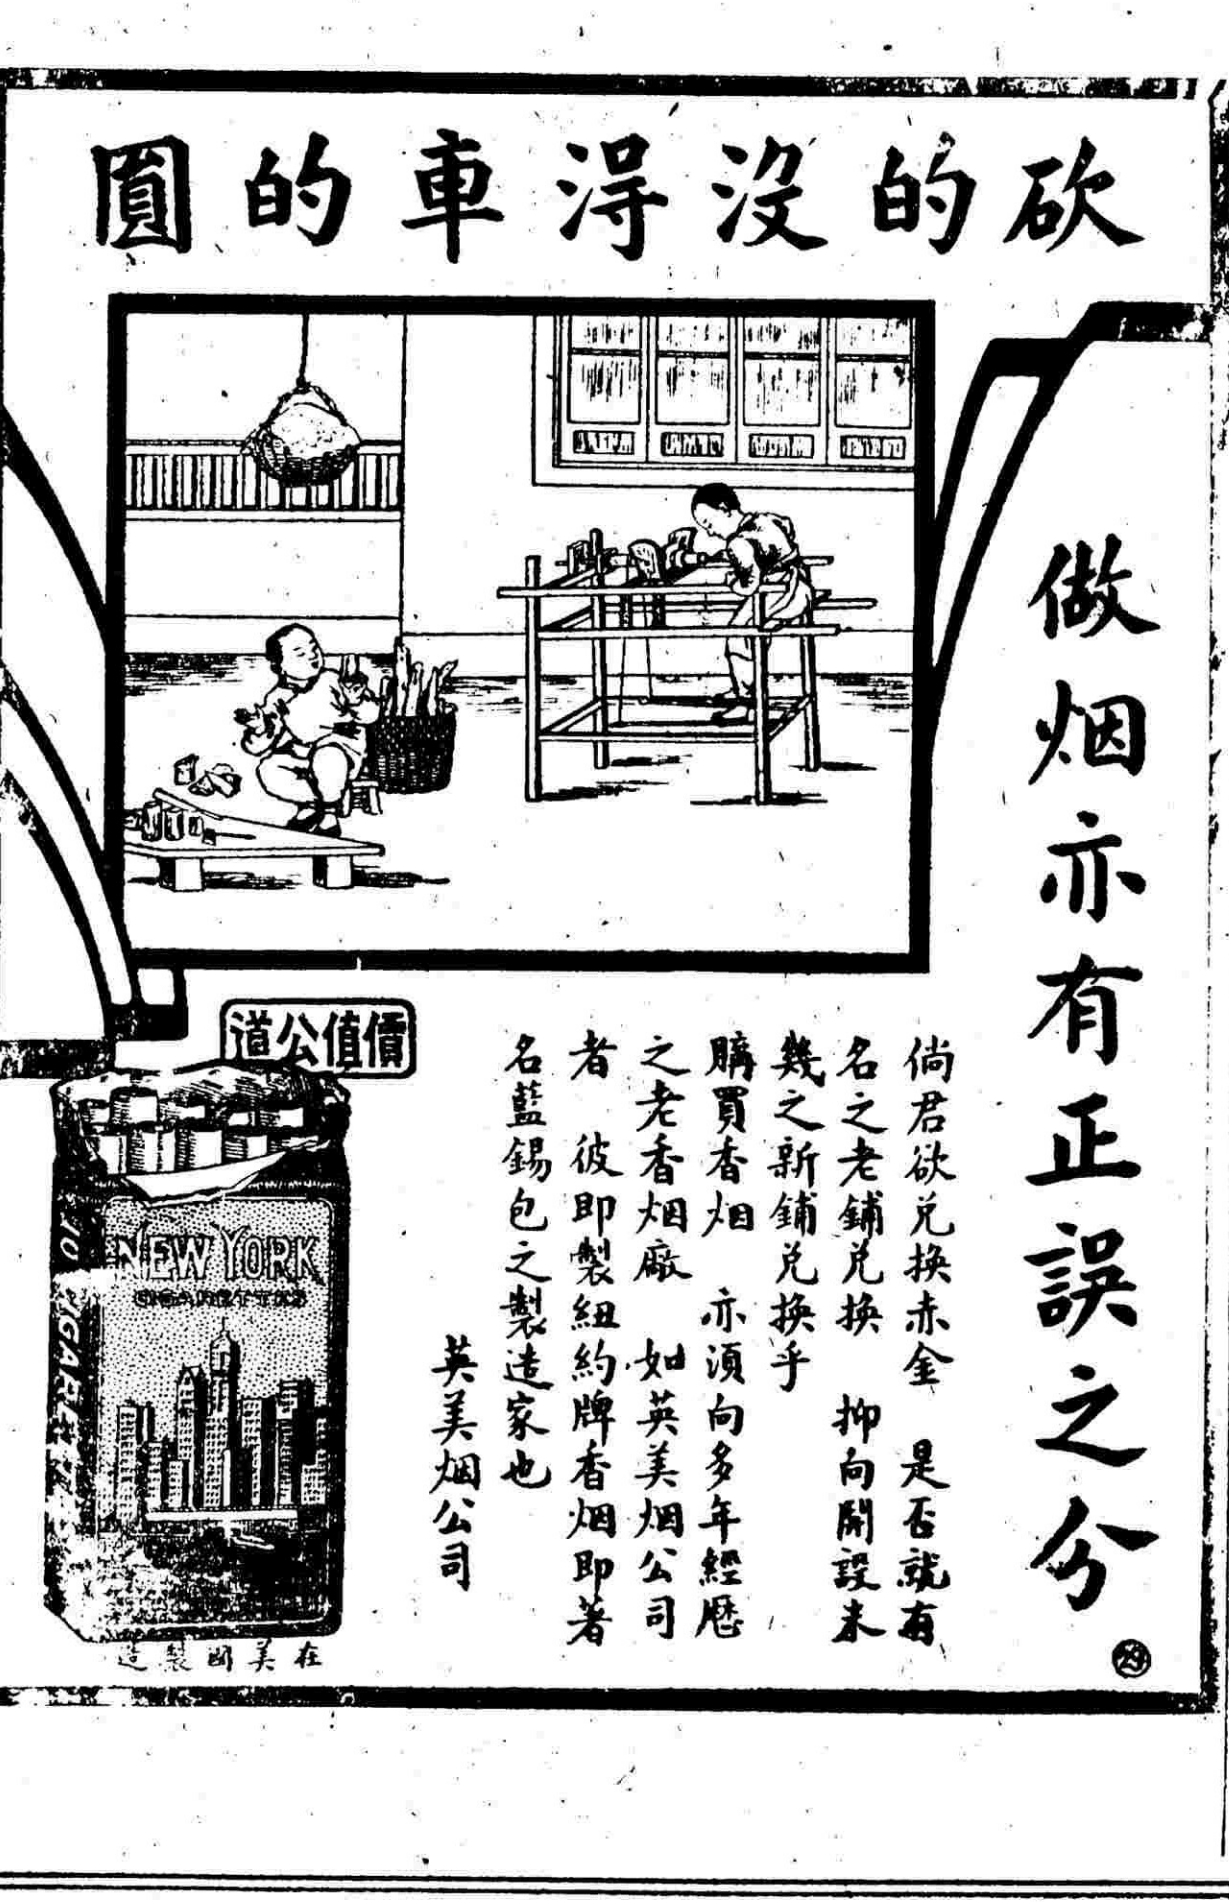 砍的没得車的圓
做烟亦有正誤之分
倘君欲兑换赤金　是否就有
名之老鋪兑换　抑向開設未
幾之新鋪兑换乎
購買香烟　亦須向多年經歷
之老香烟廠　如英美烟公司
者　彼即製紐約牌香烟即著
名藍錫包之製造家也
英美烟公司
價值公道
NEW YORK
CIGARETTES
10 CIGARETTES
在美國製造
29